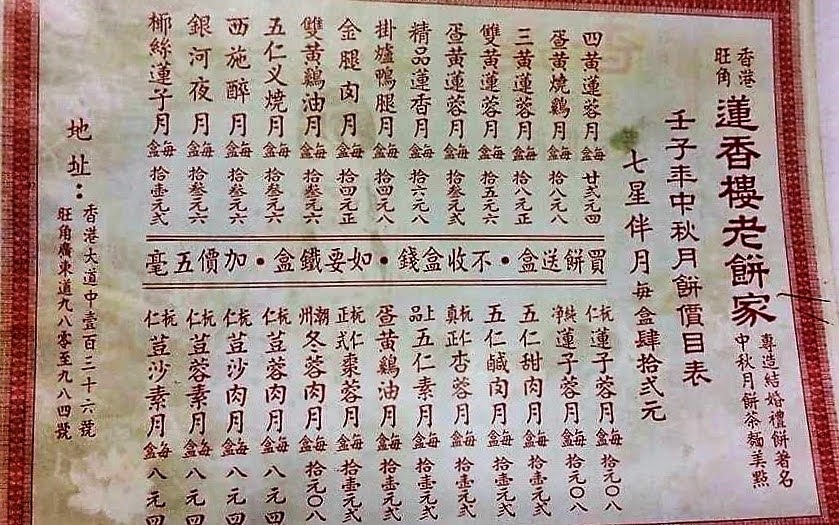 香港
旺角
蓮香樓老餅家
專造結婚禮餅著名
中秋月餅茶麵美點
壬子年中秋月餅價目表
七星伴月每盒肆拾弍元
四黃蓮蓉月每盒廿弍元四
蛋黃燒鷄月每盒拾八元八
三黃蓮蓉月每盒拾八元正
雙黃蓮蓉月每盒拾五元六
蛋黃蓮蓉月每盒拾叁元弍
精品蓮香月每盒拾六元八
掛爐鴨腿月每盒拾四元八
金腿肉月每盒拾四元正
雙黃鷄油月每盒拾叁元六
五仁叉燒月每盒拾叁元六
西施醉月每盒拾叁元六
銀河夜月每盒拾叁元六
椰絲蓮子月每盒拾壹元弍
買餅送盒•不收盒錢•如要鐵盒•加價五毫
杬仁蓮子蓉月每盒拾元〇八
純淨蓮子蓉月每盒拾元〇八
五仁甜肉月每盒拾壹元弍
五仁鹹肉月每盒拾壹元弍
真正杬仁杏蓉月每盒拾壹元弍
上品五仁素月每盒拾壹元弍
蛋黃鷄油月每盒拾壹元弍
正式杬仁棗蓉月每盒拾壹元弍
潮州冬蓉肉月每盒拾元〇八
杬仁荳蓉肉月每盒八元四
杬仁荳沙肉月每盒八元四
杬仁荳蓉素月每盒八元四
杬仁荳沙素月每盒八元四
地址：
香港大道中壹百三十六號
旺角廣東道九八零至九八四號